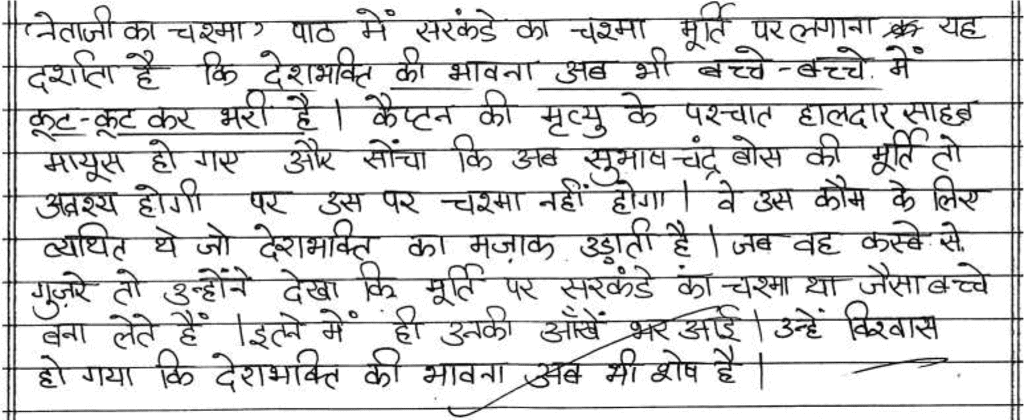 'नेताजी का चश्मा' पाठ में सरकंडे का चश्मा मूर्ति पर लगाना यह
दर्शाता है कि देशभक्ति की भावना अब भी बच्चे-बच्चे में
कूट-कूट कर भरी है। कैप्टन की मृत्यु के पश्चात हालदार साहब
मायूस हो गए और सोंचा कि अब सुभाष चंद्र बोस की मूर्ति तो
अवश्य होगी पर उस पर चश्मा नहीं होगा। वे उस कौम के लिए
व्यथित थे जो देशभक्ति का मज़ाक उड़ाती है। जब वह कस्बे से
गुज़रे तो उन्होंने देखा कि मूर्ति पर सरकंडे का चश्मा था जैसा बच्चे
बना लेते हैं। इतने में ही उनकी आँखें भर आई। उन्हें विश्वास
हो गया कि देशभक्ति की भावना अब भी शेष है।